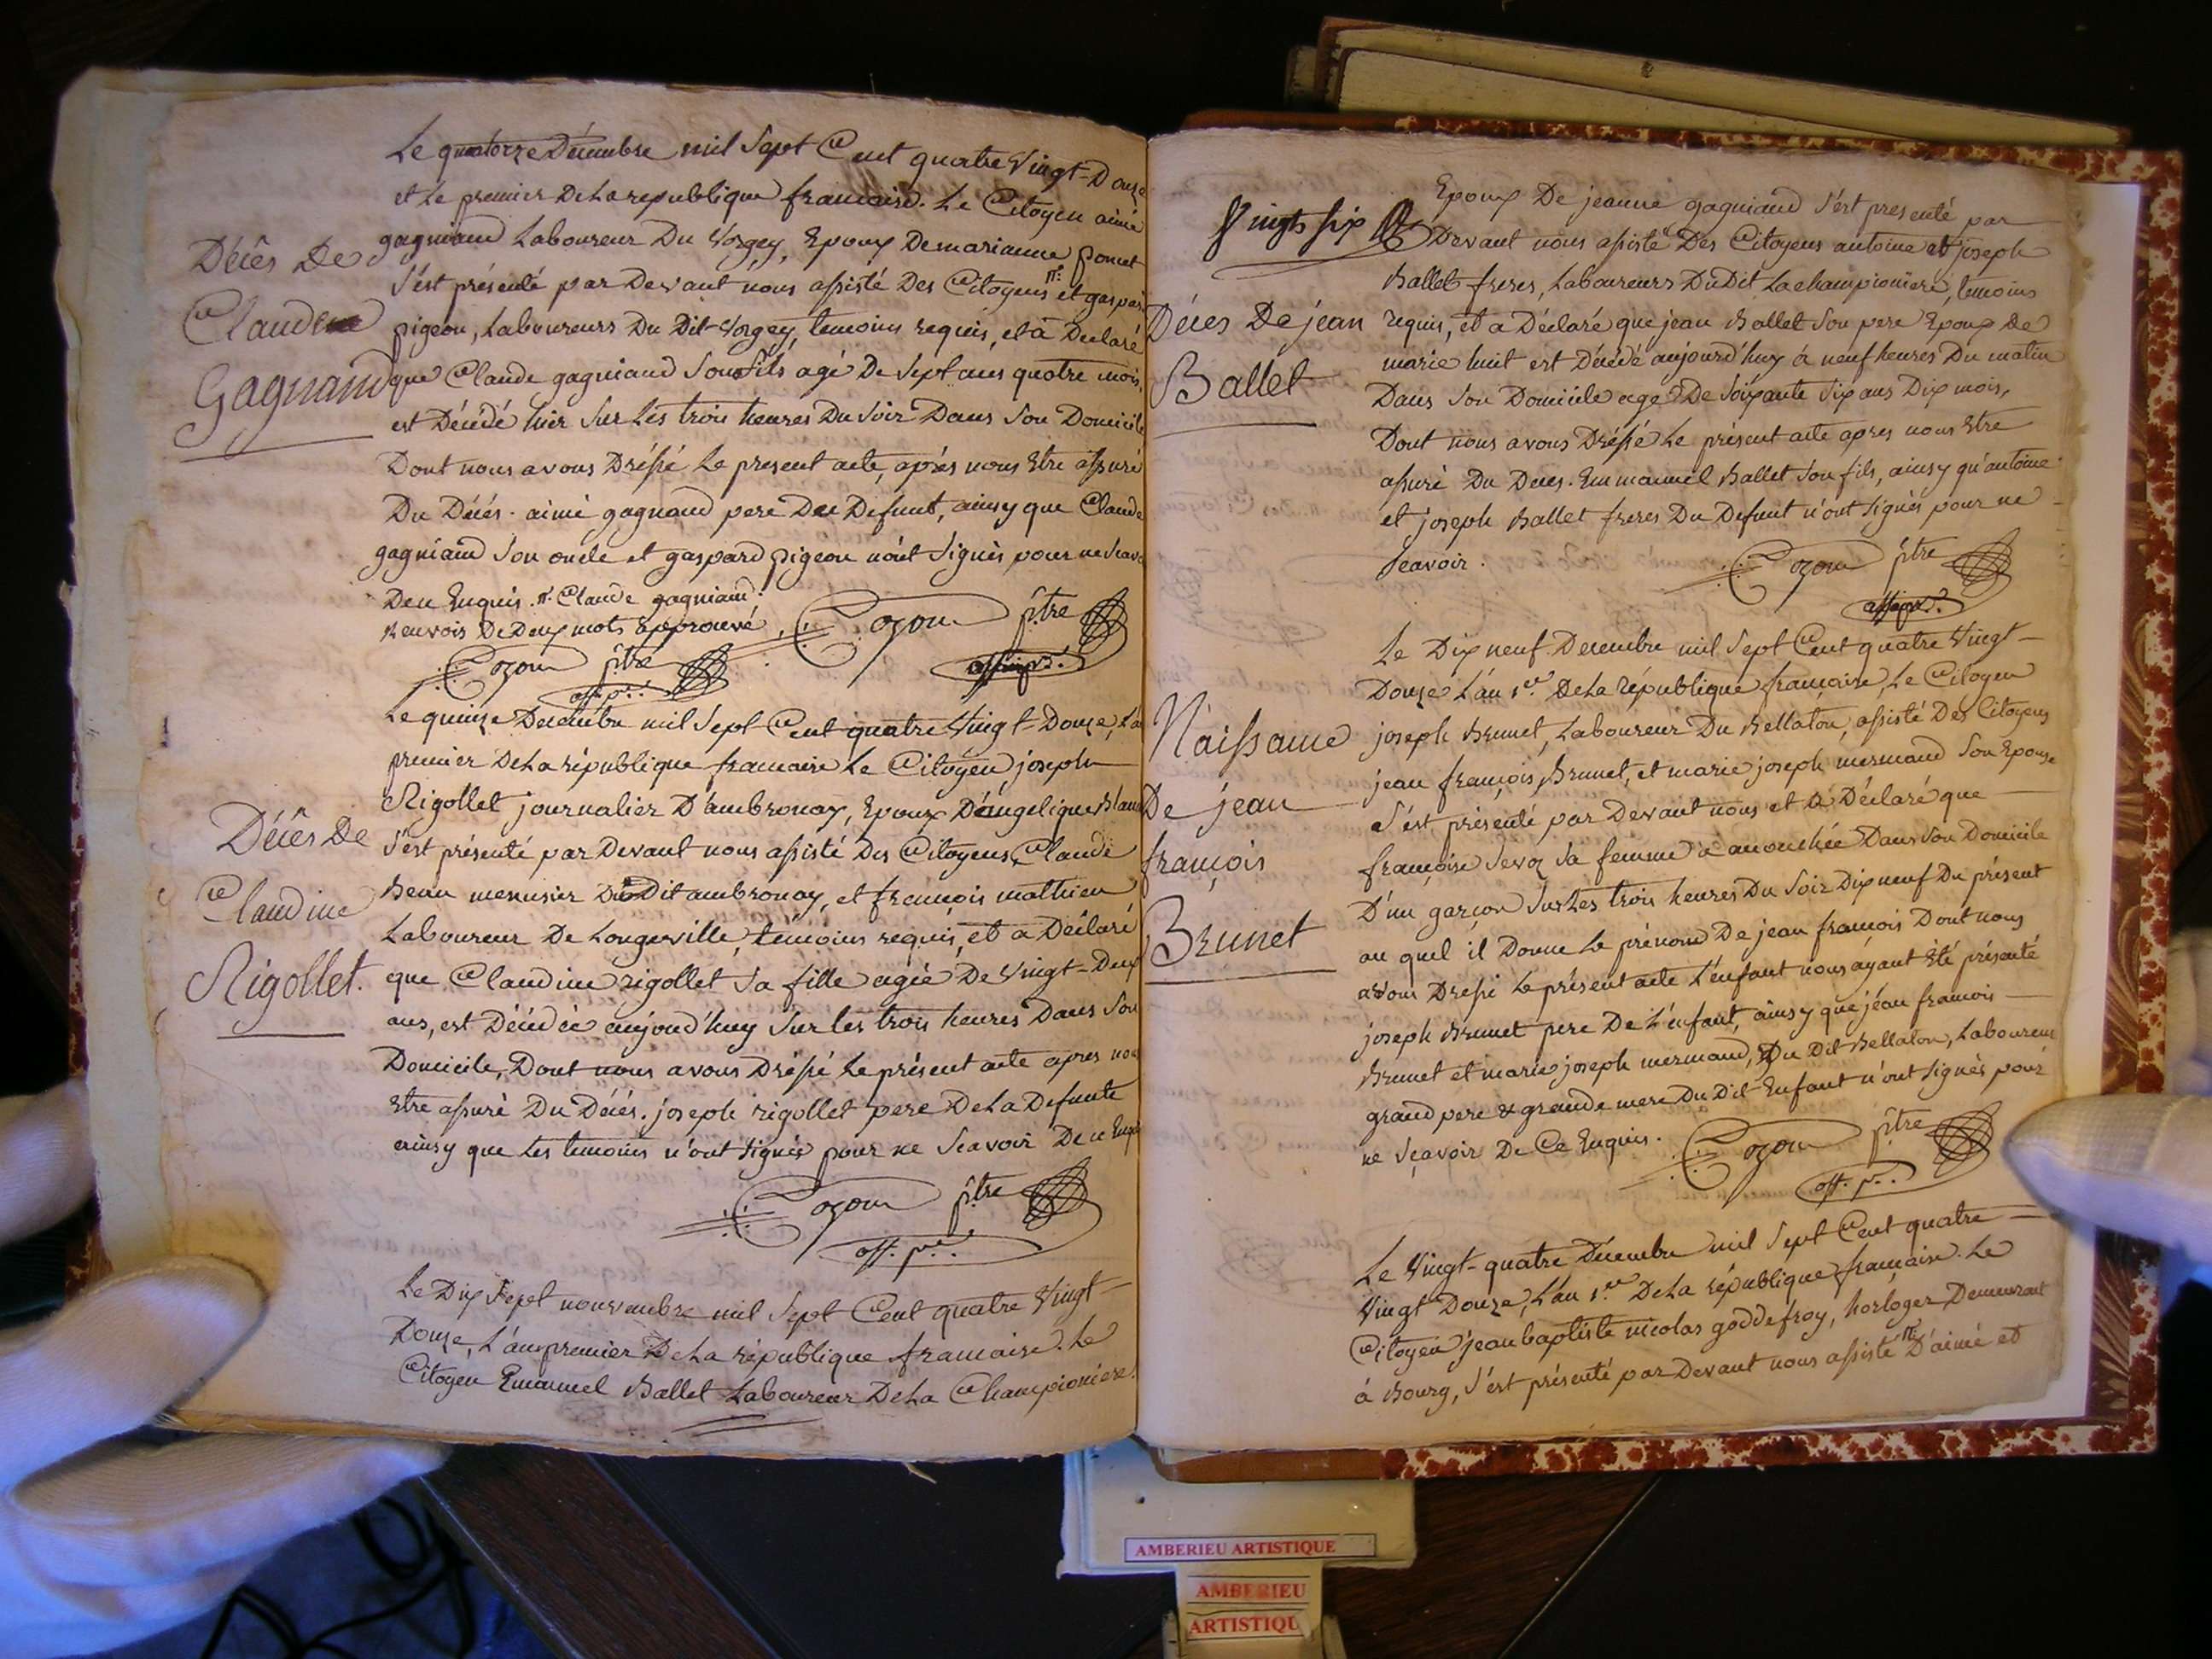 Le quatorze Décembre mil Sept Cent quatre Vingt-Douze
et Le premier De La republique francaise. Le Citoyen aimé
gagniand Laboureur Du Vorgey, Epoux De marianne poncet
S'est présenté par Devant nous assisté Des Citoyens #. et gaspar
pigeon, Laboureurs Du Dit Vorgey, temoins requis, et à Declaré
que Claude gagniand Son fils agé De Sept ans quatre mois,
est Décédé hier Sur Les trois heures Du Soir Dans Son Domicile
Dont nous avons Dréssé Le present acte, après nous Etre assuré
Du Décés. aimé gagnand pere Du Defunt, ainsy que Claude
gagniand Son oncle et gaspard pigeon n'ont Signés pour ne Scavo
De ce Enquis. #. Claude gagniand.
Renvois De Deux mots approuvé
Cozon ptre
off. p.
Cozon ptre
off. p.
Décês De
Claude
Gagnand
Le quinze Decembre mil Sept Cent quatre Vingt-Douze, L'a
premier De La république francaise Le Citoyen joseph
Rigollet journalier D'ambronay, Epoux D'angelique Blanc
S'est présenté par Devant nous assisté Des Citoyens Claude
Beau menusier Du Dit ambronay, et francois mathieu
Laboureur De Longeville, témoins requis, et a Déclaré
que Claudine rigollet Sa fille agée De Vingt-Deux
ans, est Décédée aujourd'huy Sur les trois heures Dans Son
Domicile, Dont nous avons Dréssé Le présent acte apres nou
Etre assuré Du Décés. joseph rigollet pere De La Defunte
ainsy que Les temoins n'ont Signés pour ne Scavoir De ce Enqui
Cozon ptre
off. p.
Décês De
Claudine
Rigollet.
Le Dix Sept nouvembre mil Sept Cent quatre Vingt
Douze, L'an premier De La république francaise. Le
Citoyen Emanuel Ballet Laboureur De La Championiere.
Vingts six
Epoux De jeanne gagniand S'est presenté par
Devant nous assisté Des Citoyens antoine et joseph
Ballet freres, Laboureurs Du Dit La championiere, temoins
requis, et a Déclaré que jean Ballet Son pere Epoux De
marie huit est Décédé aujourd'huy á neuf heures Du matin
Dans Son Domicile age De Soixante Six ans Dix mois,
Dont nous avons Dréssé Le présent acte apres nous Etre
assuré Du Deces. Emmanuel Ballet Son fils, ainsy qu'antoine
et joseph Ballet freres Du Defunt n'ont Signés pour ne
Scavoir.
Cozon ptre
off. p.
Décès De jean
Ballet
Le Dix neuf Decembre mil Sept Cent quatre Vingt
Douze L'an 1.er De La république française, Le Citoyen
joseph Brunet, Laboureur Du Bellaton, assisté Des Citoyens
jean françois Brunet, et marie joseph mermand Son Epouse
S'est présenté par Devant nous et a Déclaré que
françoise Sa femme a accouchée Dans Son Domicile
D'un garçon Sur Les trois heures Du Soir Dix neuf Du présent
au quel il Donne Le prénom De jean francois Dont nous
avons Dressé Le présent acte L'enfant nous ayant été présenté
joseph Brunet pere De L'enfant, ainsy que jéan francois
Brunet et marie joseph mermand, Du Dit Bellaton, Laboureur
grand pere & grande mere Du Dit Enfant n'ont Signés pour
ne Sçavoir De Ce Enquis.
Cozon ptre
off. p.
Naissance
De jean
françois
Brunet
Le Vingt-quatre Décembre mil Sept Cent quatre
Vingt Douze, L'an 1.er De La république française. Le
Citoyen jean baptiste nicolas goddefroy, horloger Demeurant
à Bourg, S'est présenté par Devant nous assisté #. D'aimé et
AMBERIEU ARTISTIQUE
AMBERIEU
ARTISTIQU